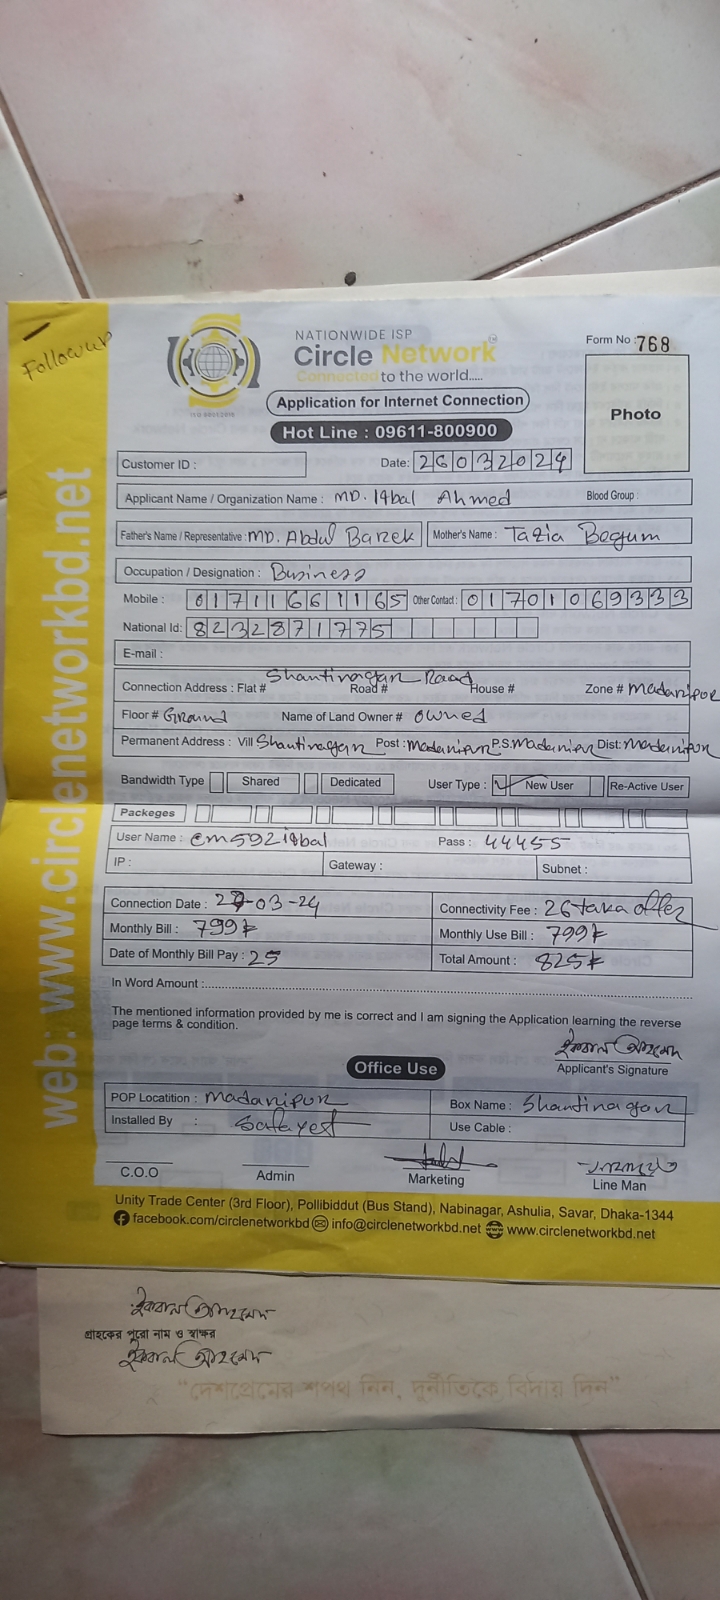 Followup
NATIONWIDE ISP
Circle Network
Connected to the world.....
ISO 9001:2015
Application for Internet Connection
Hot Line : 09611-800900
Form No : 768
Photo
Customer ID :
Date: 26032024
Applicant Name / Organization Name : MD. Iqbal Ahmed Blood Group :
Father's Name / Representative : MD. Abdul Barek Mother's Name : Tazia Begum
Occupation / Designation : Business
Mobile : 01711661165 Other Contact : 01701069333
National Id: 8232871775
E-mail :
Connection Address : Flat # Shantinagar Road Road # House # Zone # Madaripur
Floor # Ground Name of Land Owner # owned
Permanent Address : Vill Shantinagar Post : Madaripur P.S. Madaripur Dist: Madaripur
Bandwidth Type Shared Dedicated User Type : New User Re-Active User
Packeges
User Name : cm592iqbal Pass : 44455
IP : Gateway : Subnet :
Connection Date : 27-03-24 Connectivity Fee : 26 taka offer
Monthly Bill : 799৳ Monthly Use Bill : 799৳
Date of Monthly Bill Pay : 25 Total Amount : 825৳
In Word Amount :
The mentioned information provided by me is correct and I am signing the Application learning the reverse
page terms & condition.
ইকবাল আহমেদ
Applicant's Signature
Office Use
POP Locatition : Madaripur Box Name : Shantinagar
Installed By : Safayet Use Cable :
C.O.O Admin Marketing Line Man
Unity Trade Center (3rd Floor), Pollibiddut (Bus Stand), Nabinagar, Ashulia, Savar, Dhaka-1344
facebook.com/circlenetworkbd info@circlenetworkbd.net www.circlenetworkbd.net
web: www.circlenetworkbd.net
ইকবাল আহমেদ
গ্রাহকের পুরো নাম ও স্বাক্ষর
ইকবাল আহমেদ
"দেশপ্রেমের শপথ নিন, দুর্নীতিকে বিদায় দিন"